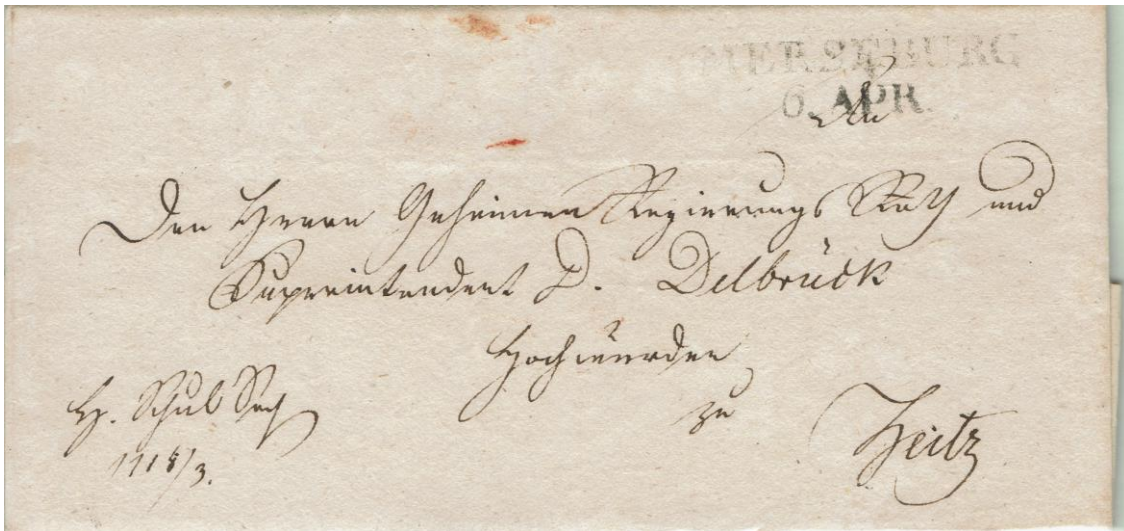 MERSEBURG
6. APR.
An
Den Herrn Geheimen Regierungs Rath und
Superintendent D. Delbrück
Hochwürden
zu
Zeitz
H. Schul Sach